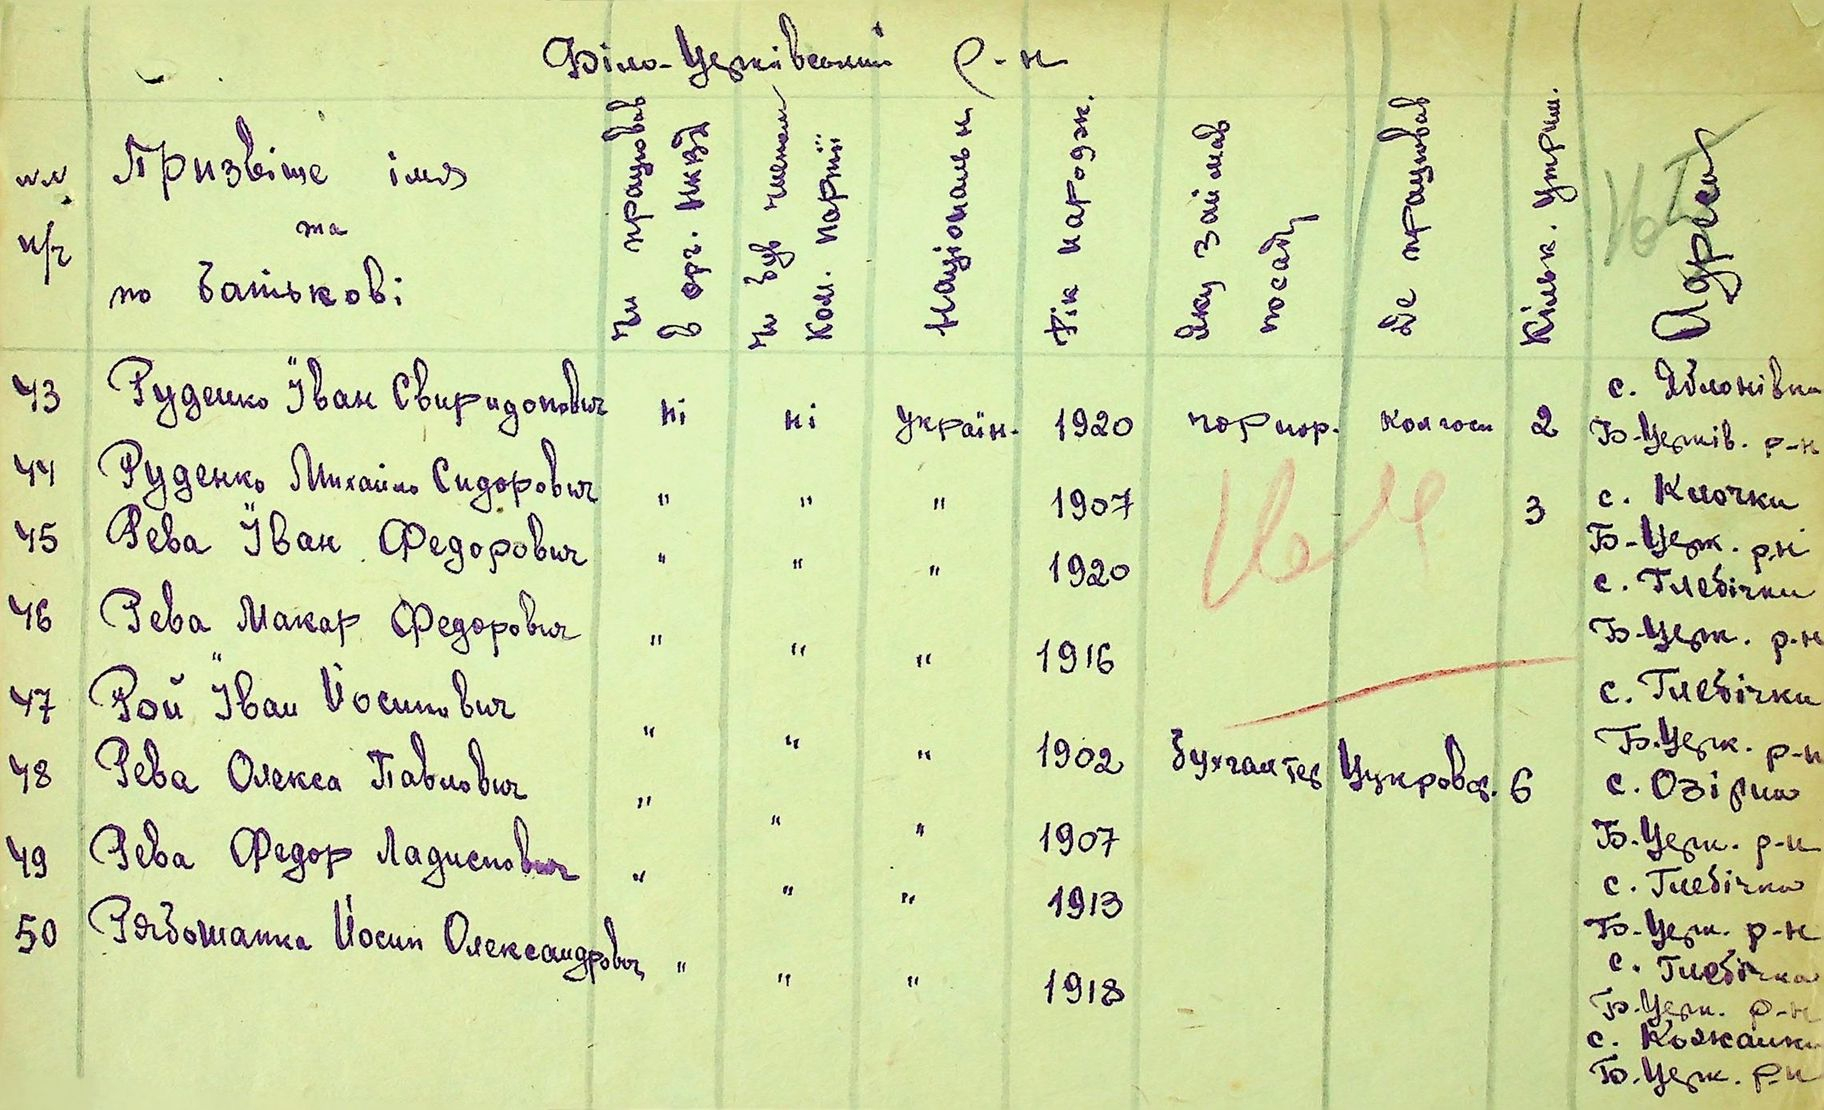 Біло-Церківський р-н
№№ п/ч
Призвіще імя та по батькові
Чи працював в орг. НКВД
Чи був членом Ком. партії
Національн.
Рік народж.
Яку займав посаду
Де працював
Кільк. утрим.
Адреса
43 Руденко Іван Свиридонович ні ні україн. 1920 чорнор. колгосп 2 с. Яблонівка
Б-Церків. р-н
44 Руденко Михайло Сидорович " " " 1907 3 с. Клочки
Б-Церк. р-н
45 Рева Іван Федорович " " " 1920 с. Глебічки
Б-Церк. р-н
46 Рева Макар Федорович " " " 1916 с. Глебічки
Б.Церк. р-н
47 Рой Іван Йосипович " " " 1902 бухгалтер Цукровоз. 6 с. Озірна
Б.Церк. р-н
48 Рева Олекса Павлович " " " 1907 с. Глебічка
Б-Церк. р-н
49 Рева Федор Ладиспович " " " 1913 с. Глебічка
Б-Церк. р-н
50 Рябошапка Йосип Олександрович " " " 1918 с. Кожанки
Б.Церк. р-н